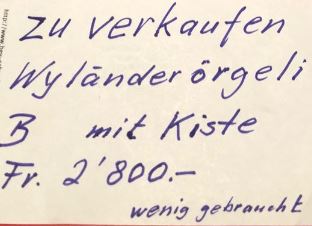 zu verkaufen
Wyländerörgeli
B mit Kiste
Fr. 2'800.-
wenig gebraucht